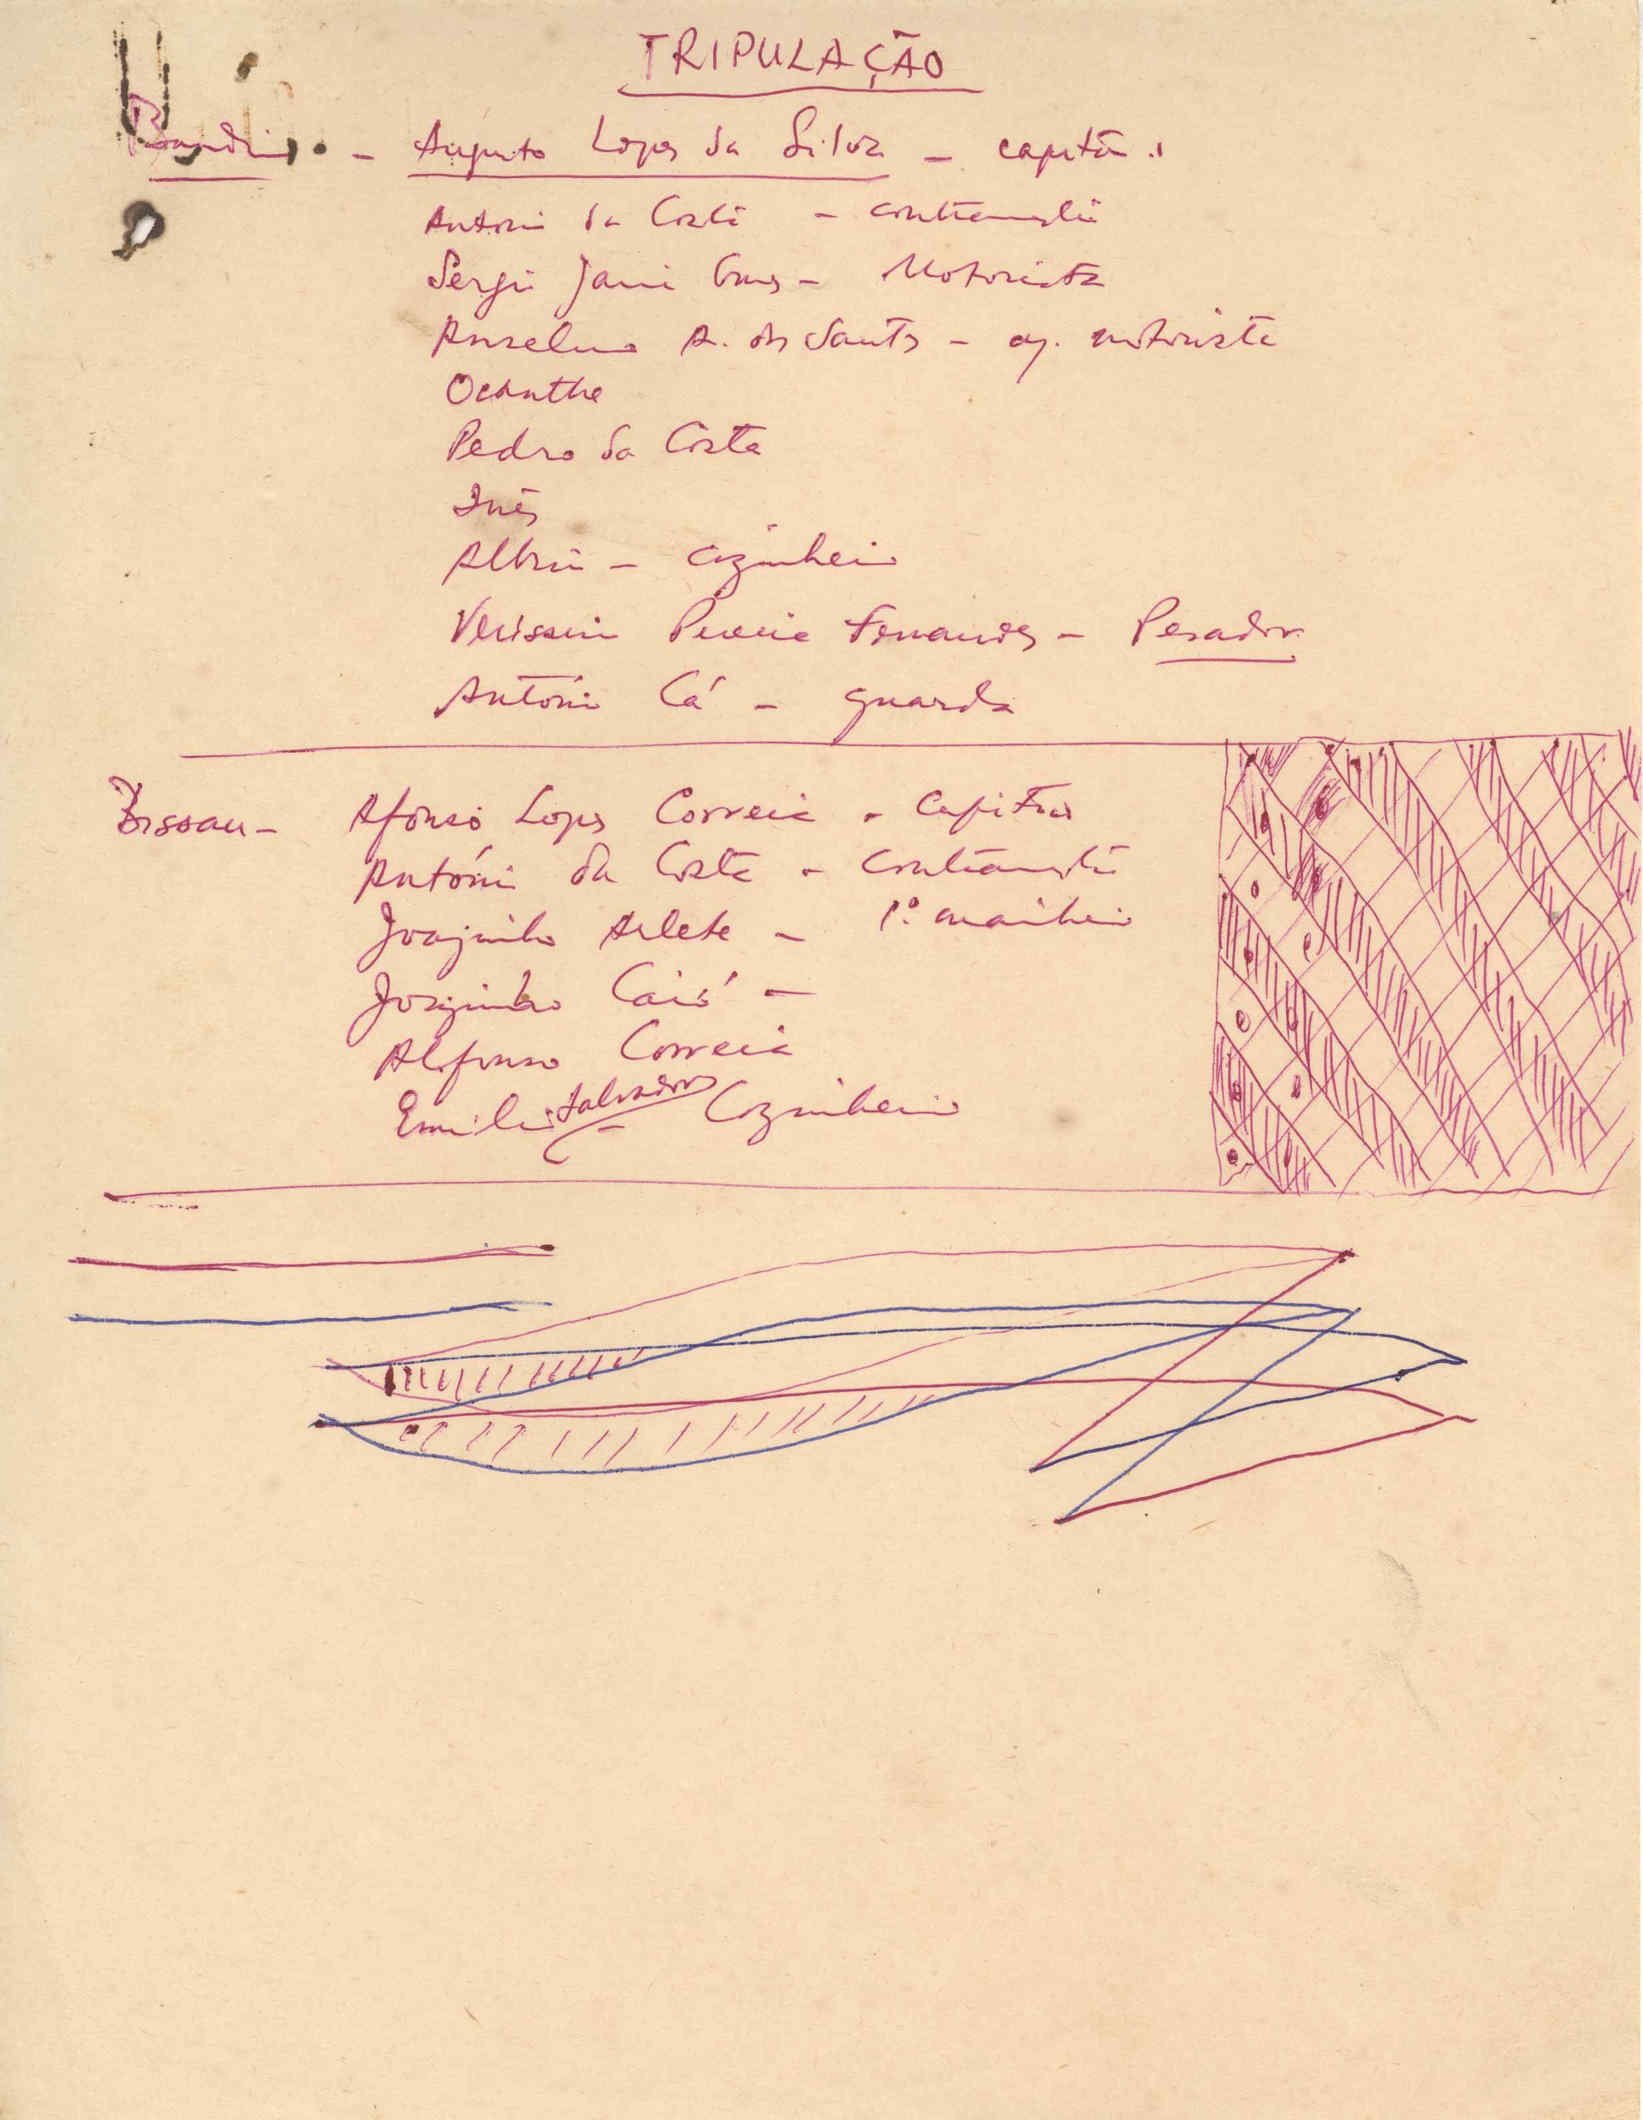 TRIPULAÇÃO
Bandim - Augusto Lopes da Silva - capitão
António da Costa - contramestre
Sergio Gomes - Motorista
Anselmo A. dos Santos - aj. motorista
Ocanthe
Pedro da Costa
Inês
Albino - cozinheiro
Verissimo Pereira Fernandes - Pesador
António Cá - guarda
Bissau - Afonso Lopes Correia - Capitão
António da Costa - contramestre
Joaquinho Arlete - 1º marinheiro
Caió -
Alfonso Correia
Emilio Salvador - Cozinheiro